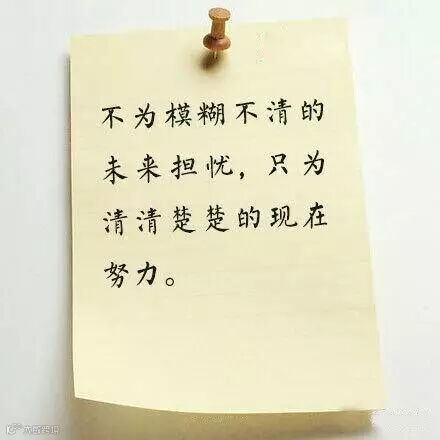 不为模糊不清的
未来担忧，只为
清清楚楚的现在
努力。
大威跨境